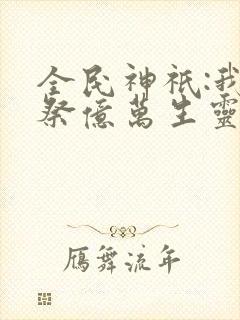 全民神祇:我
祭億萬生靈
雁舞流年